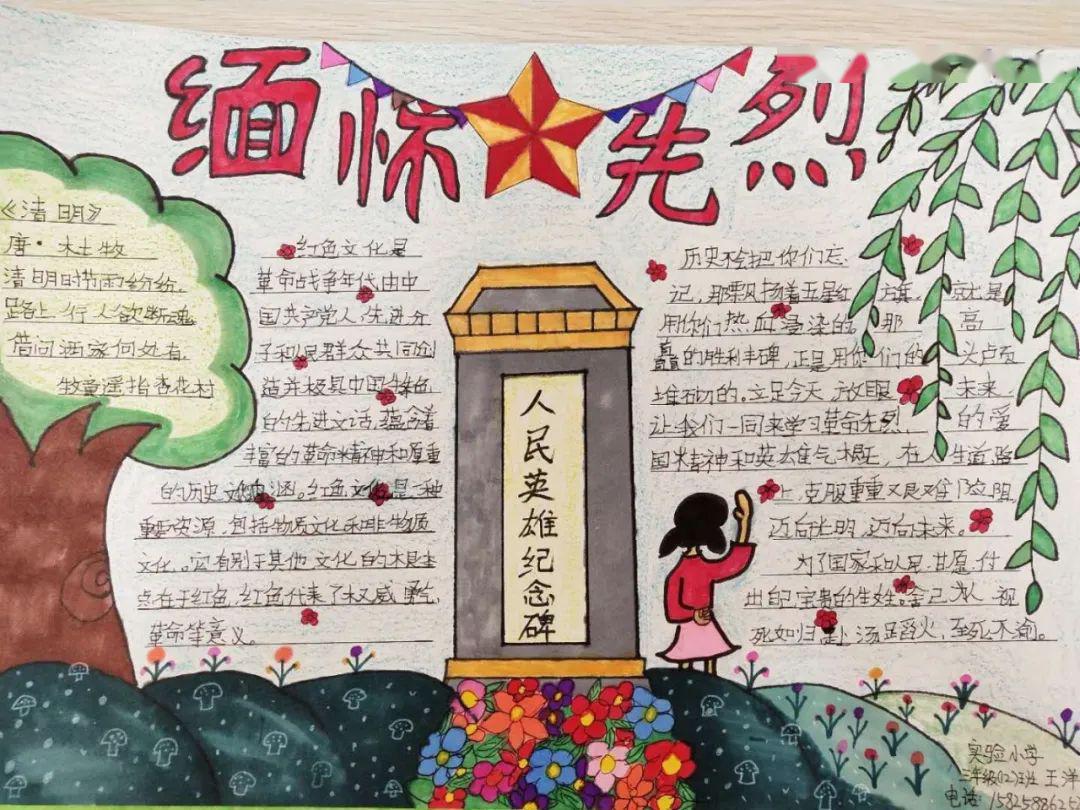 缅怀先烈
《清明》
唐·杜牧
清明时节雨纷纷,
路上行人欲断魂
借问酒家何处有,
牧童遥指杏花村
红色文化是
革命战争年代由中
国共产党人、先进分
子和人民群众共同创
造并极具中国特色
的先进文话,蕴含着
丰富的革命精神和厚重
的历史文化内涵。红色文化是一种
重要资源,包括物质文化和非物质
文化。它有别于其他文化的根本
点在于红色,红色代表了权威、勇气,
革命等意义。
人民英雄纪念碑
历史不会把你们忘
记,那飘扬着五星红旗,就是
用你们热血浸染的那高
矗的胜利丰碑,正是用你们的头卢页
堆砌的。立足今天,放眼未来
让我们一同来学习革命先烈,的爱
国精神和英雄气概,在人生道路
上,克服重重艰难险阻,
迈向光明,迈向未来。
为了国家和人民,甘愿付
出自己宝贵的生姓。舍己为人、视
死如归、赴汤蹈火,至死不渝。
实验小学
三年级(2)班 王洋
电话: